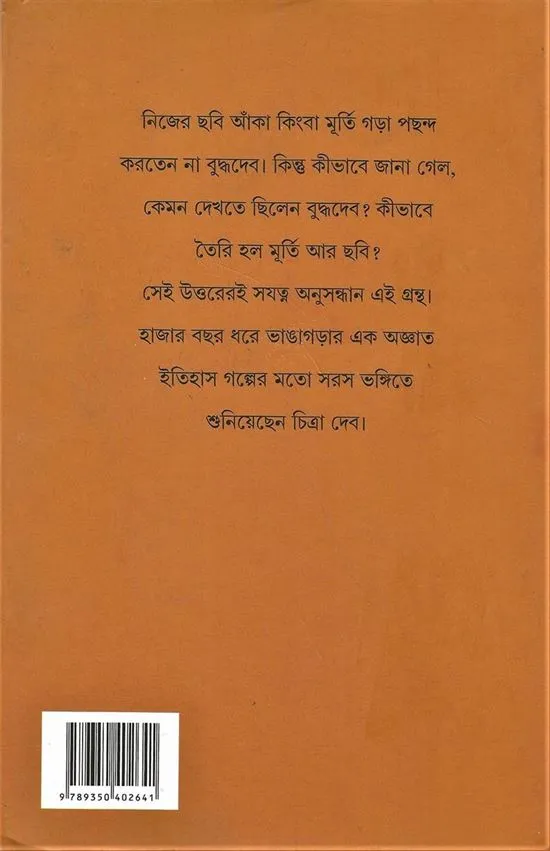 নিজের ছবি আঁকা কিংবা মূর্তি গড়া পছন্দ
করতেন না বুদ্ধদেব। কিন্তু কীভাবে জানা গেল,
কেমন দেখতে ছিলেন বুদ্ধদেব? কীভাবে
তৈরি হল মূর্তি আর ছবি?
সেই উত্তরেরই সযত্ন অনুসন্ধান এই গ্রন্থ।
হাজার বছর ধরে ভাঙাগড়ার এক অজ্ঞাত
ইতিহাস গল্পের মতো সরস ভঙ্গিতে
শুনিয়েছেন চিত্রা দেব।
9 789350 402641